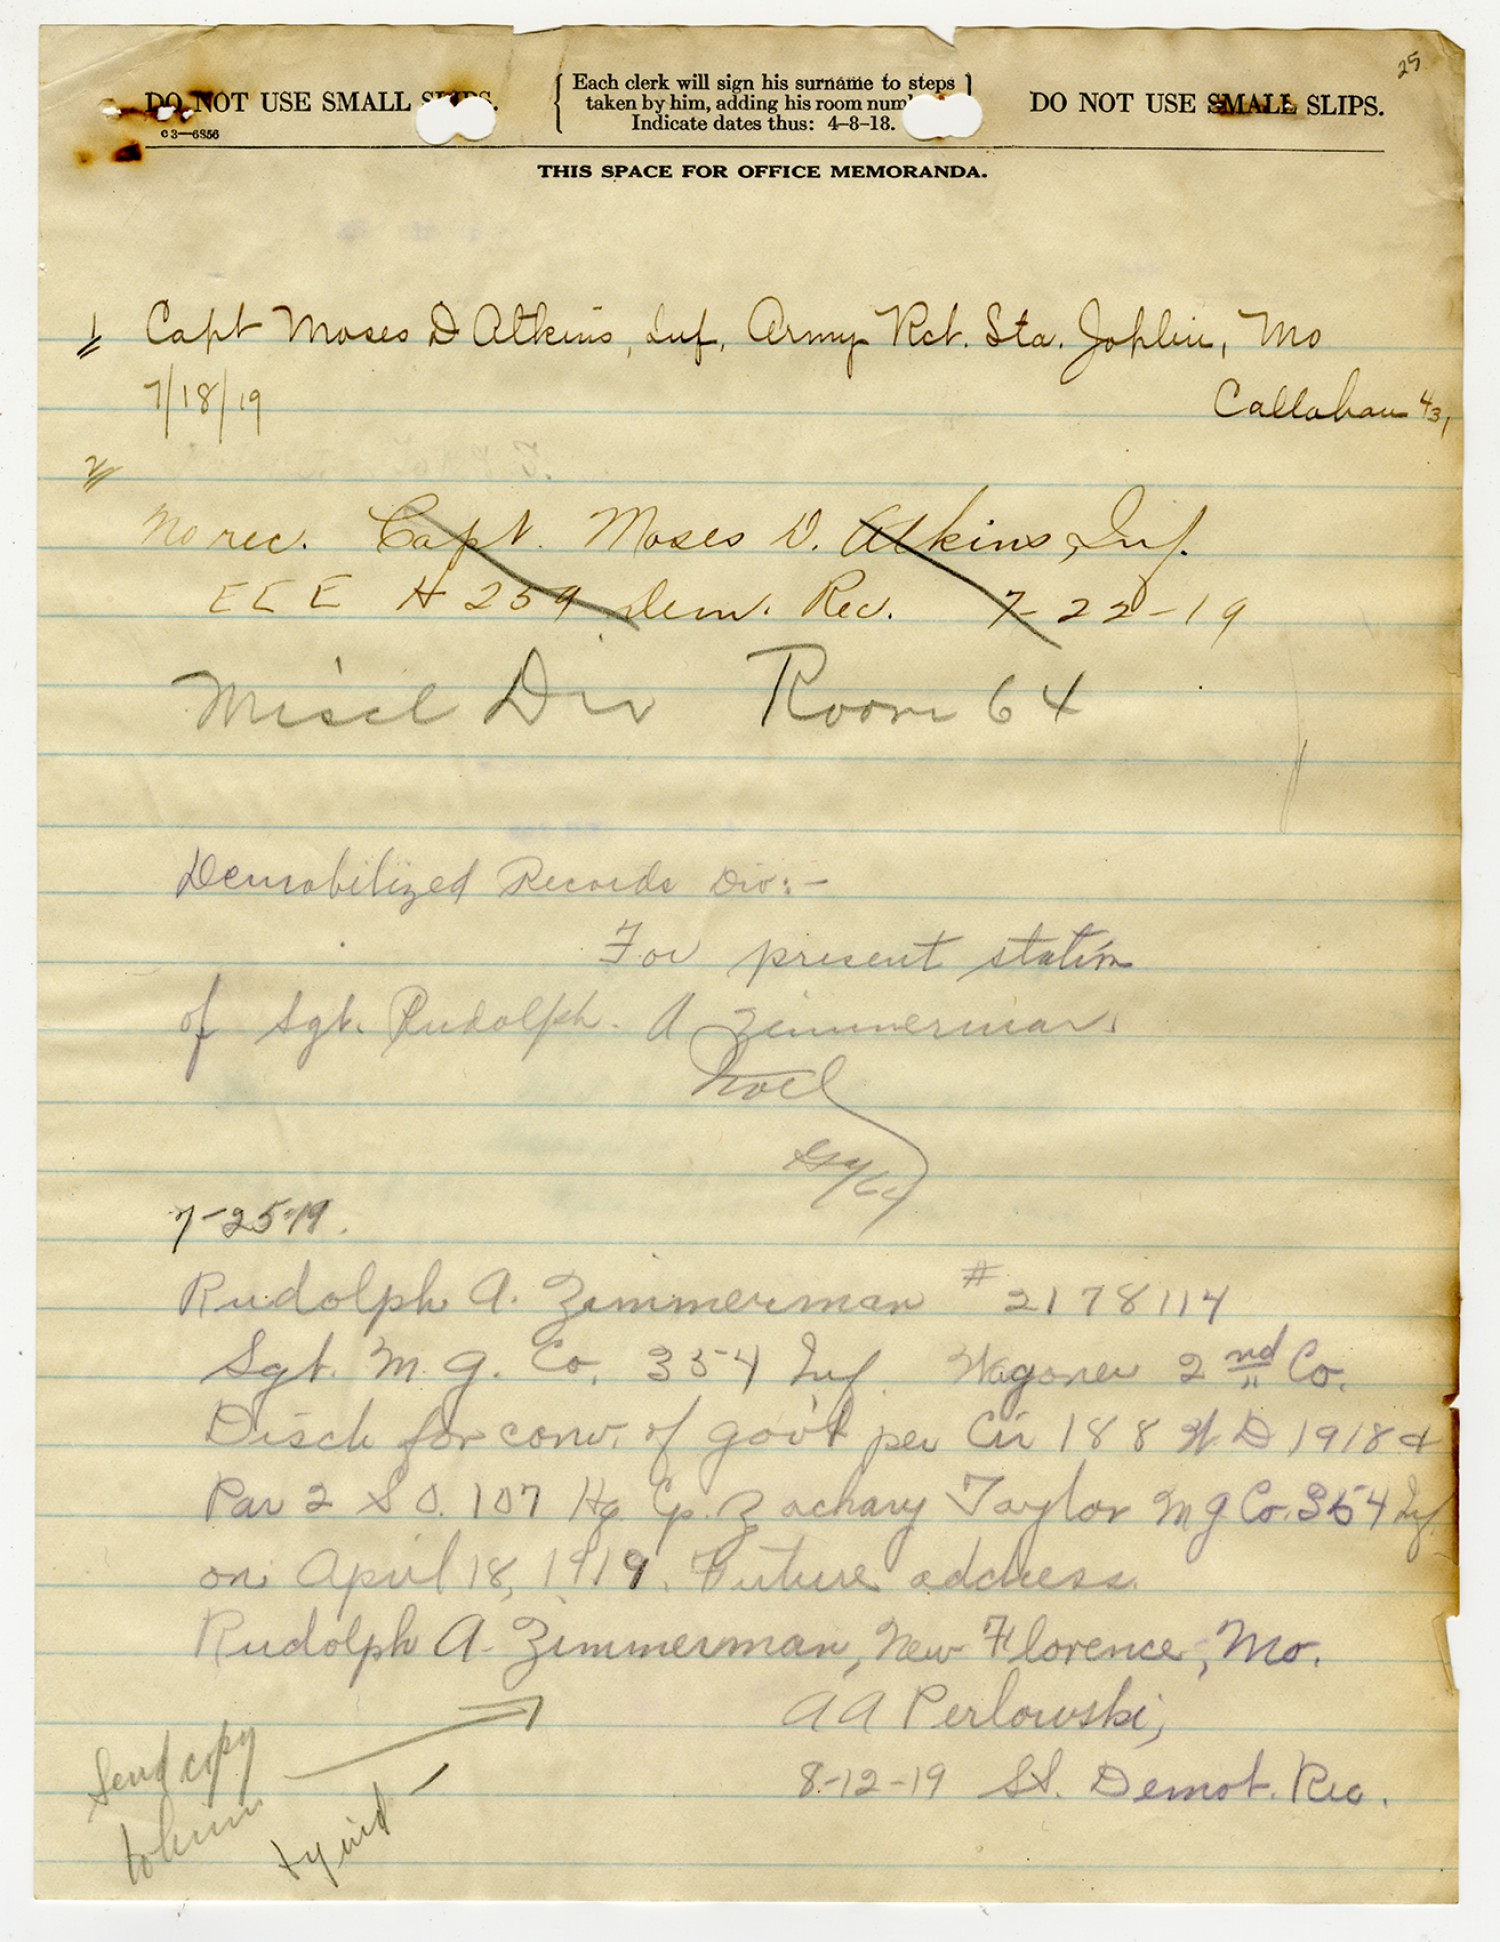 25
DO NOT USE SMALL SLIPS.
Each clerk will sign his surname to steps
taken by him, adding his room num
Indicate dates thus: 4-8-18.
DO NOT USE SMALL SLIPS.
c3—6856
THIS SPACE FOR OFFICE MEMORANDA.
1/ Capt Moses D Atkins, Inf, Army Rct. Sta. Joplin, Mo
7/18/19
Callahan 43,
2/
No rec. Capt. Moses D. Atkins, Inf.
EEE H 259 Dem. Rec. 7-22-19
Miscl Div Room 64
Demobilized Records Div:-
For present station
of Sgt. Rudolph. A Zimmerman.
Noel
7-25-19.
Rudolph A. Zimmerman # 2178114
Sgt. M. G. Co. 354 Inf. Wagoner 2nd Co.
Disch for conv. of gov't per Cir 188 W D 1918 &
Par 2 S O. 107 Hq Cp. Zachary Taylor M G Co. 354 Inf
on April 18, 1919. Future address.
Rudolph A. Zimmerman, New Florence, Mo.
A A Perlowski,
8-12-19 St. Demob. Rec.
Send copy
to him